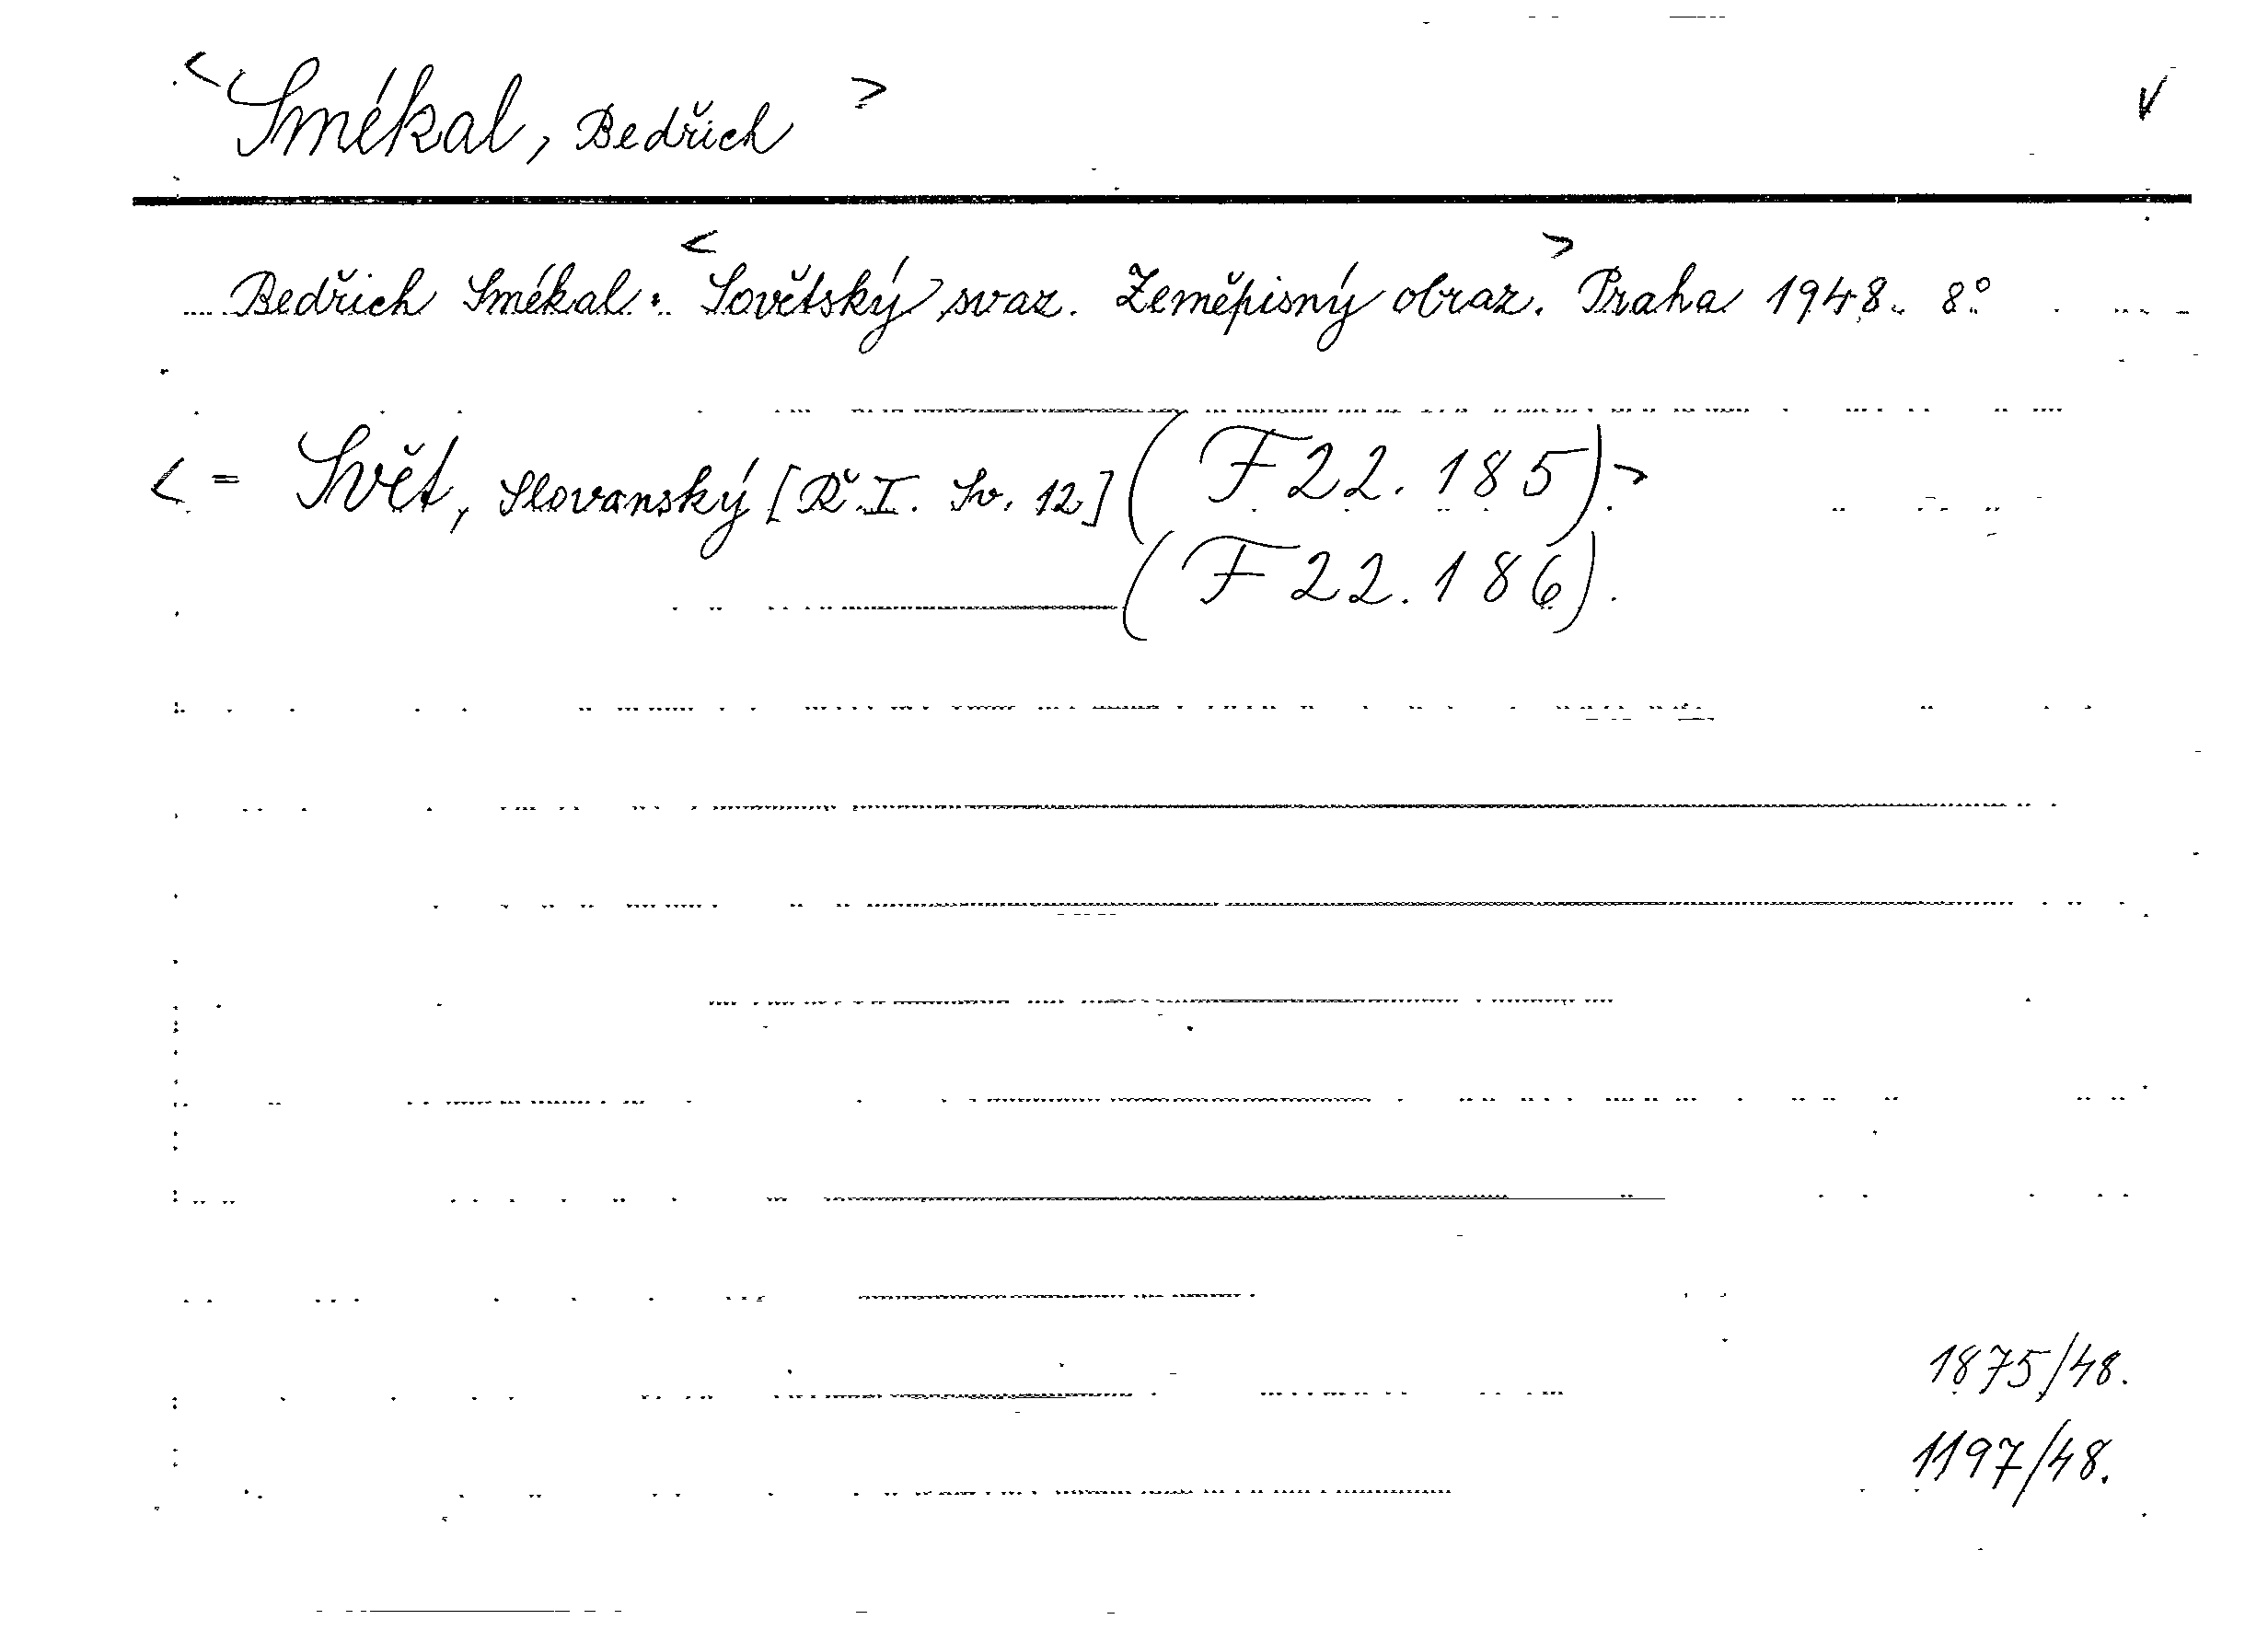 <Smékal, Bedřich> v
Bedřich Smékal: <Sovětský svaz. Zeměpisný obraz.> Praha 1948. 8°
<= Svět, Slovanský [Ř. I. Sv. 12] (F 22.185)>
(F 22.186).
1875/48.
1197/48.